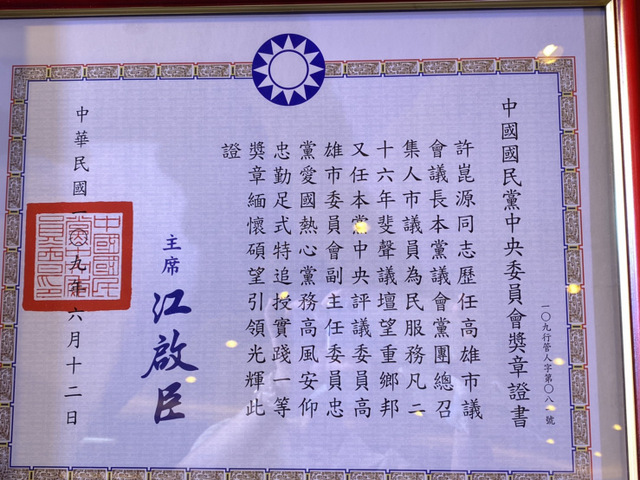 中國國民黨中央委員會獎章證書
一〇九行管人字第〇八 號
許崑源同志歷任高雄市議
會議長本黨議會黨團總召
集人市議員為民服務凡二
十六年斐聲議壇望重鄉邦
又任本黨中央評議委員高
雄市委員會副主任委員忠
黨愛國熱心黨務高風安仰
忠勤足式特追授實踐一等
獎章緬懷碩望引領光輝此
證
主席 江啟臣
中華民國 九年六月十二日